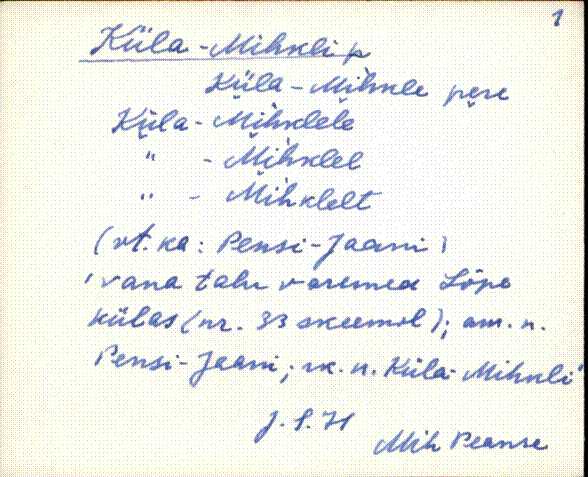 1
Küla-Mihkli p
Küla-Mihkle pere
Küla-Mihklele
" - Mihklel
" - Mihklelt
(vt. ka: Pensi-Jaani)
'vana talu varemed Lõpe
külas (nr. 33 skeemil); am. n.
Pensi-Jaani; rk. n. Küla-Mihkli'
Mih